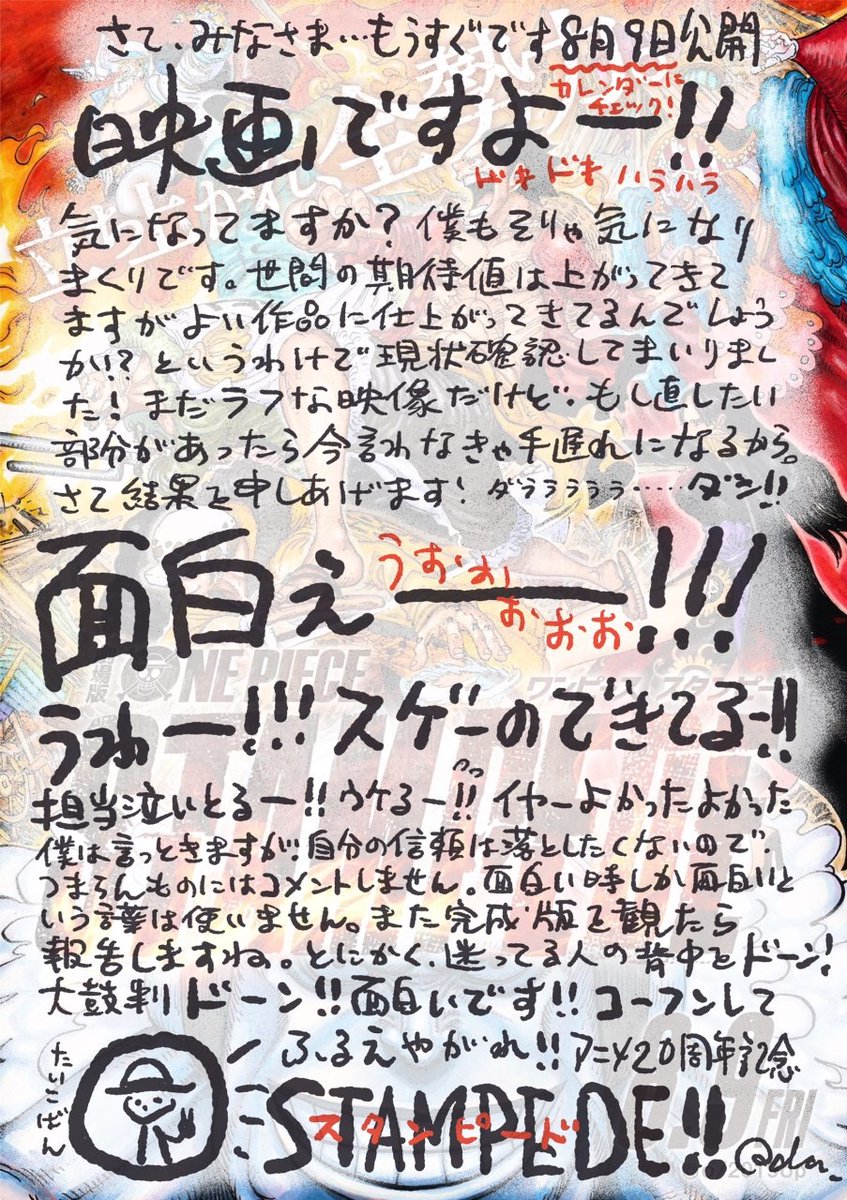 さて、みなさま…もうすぐです8月9日公開
カレンダーに
チェック!
映画ですよー!!
ドキドキ ハラハラ
気になってますか?僕もそりゃ気になり
まくりです。世間の期待値は上がってきて
ますがよい作品に仕上がってきてるんでしょう
かい?というわけで現状確認してまいりまし
た!まだラフな映像だけど、もし直したい
部分があったら今言わなきゃ手遅れになるから。
さて結果を申しあげます!ダララララ……ダン!!
面白ぇーー!!!
うおおおおお
ONE PIECE
うわー!!!スゲーのできてるー!!
担当泣いとるー!!ウケるー!!イヤーよかったよかった
僕は言っときますが、自分の信頼は落としたくないので、
つまらんものにはコメントしません。面白い時しか面白いと
いう言葉は使いません。また完成版を観たら
報告しますね。とにかく、迷ってる人の背中をドーン!
太鼓判ドーン!!面白いです!!コーフンして
ふるえやがれ!!アニメ20周年記念
たいこばん
STAMPEDE!!
スタンピード
8.9 FRI